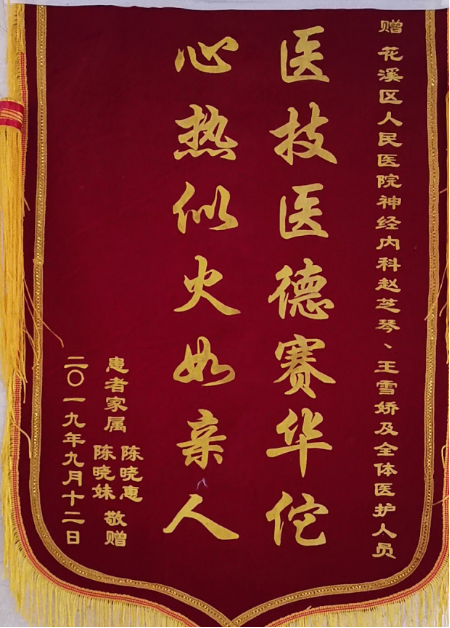 赠 花溪区人民医院神经内科赵芝琴、王雪娇及全体医护人员
医技医德赛华佗
心热似火如亲人
患者家属 陈晓惠 敬赠
陈晓妹
二〇一九年九月十二日